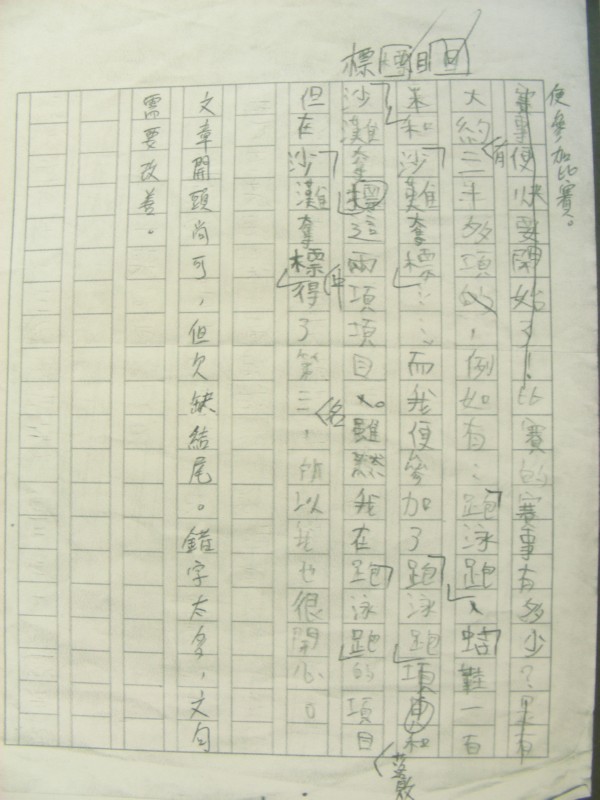 標標目目
便參加比賽。
賽事便快要開始了！比賽的賽事有多少？是有
大約二十多項的，例如有：跑泳跑、蛞鞋一百
米和沙灘奪標……，而我便參加了跑泳跑項目和
沙灘奪標這兩項項目。雖然我在跑泳跑的項目
落敗
但在沙灘奪標得了第三，所以我也很開心。
有
中
名
文章開頭尚可，但欠缺結尾。錯字太多，文句
需要改善。